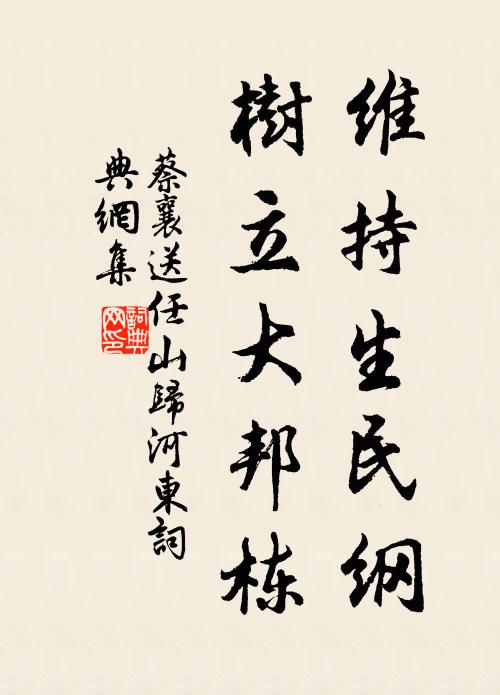 維持生民纲
樹立大邦栋
蔡襄送任山歸河東詞
典網集
詞典网印